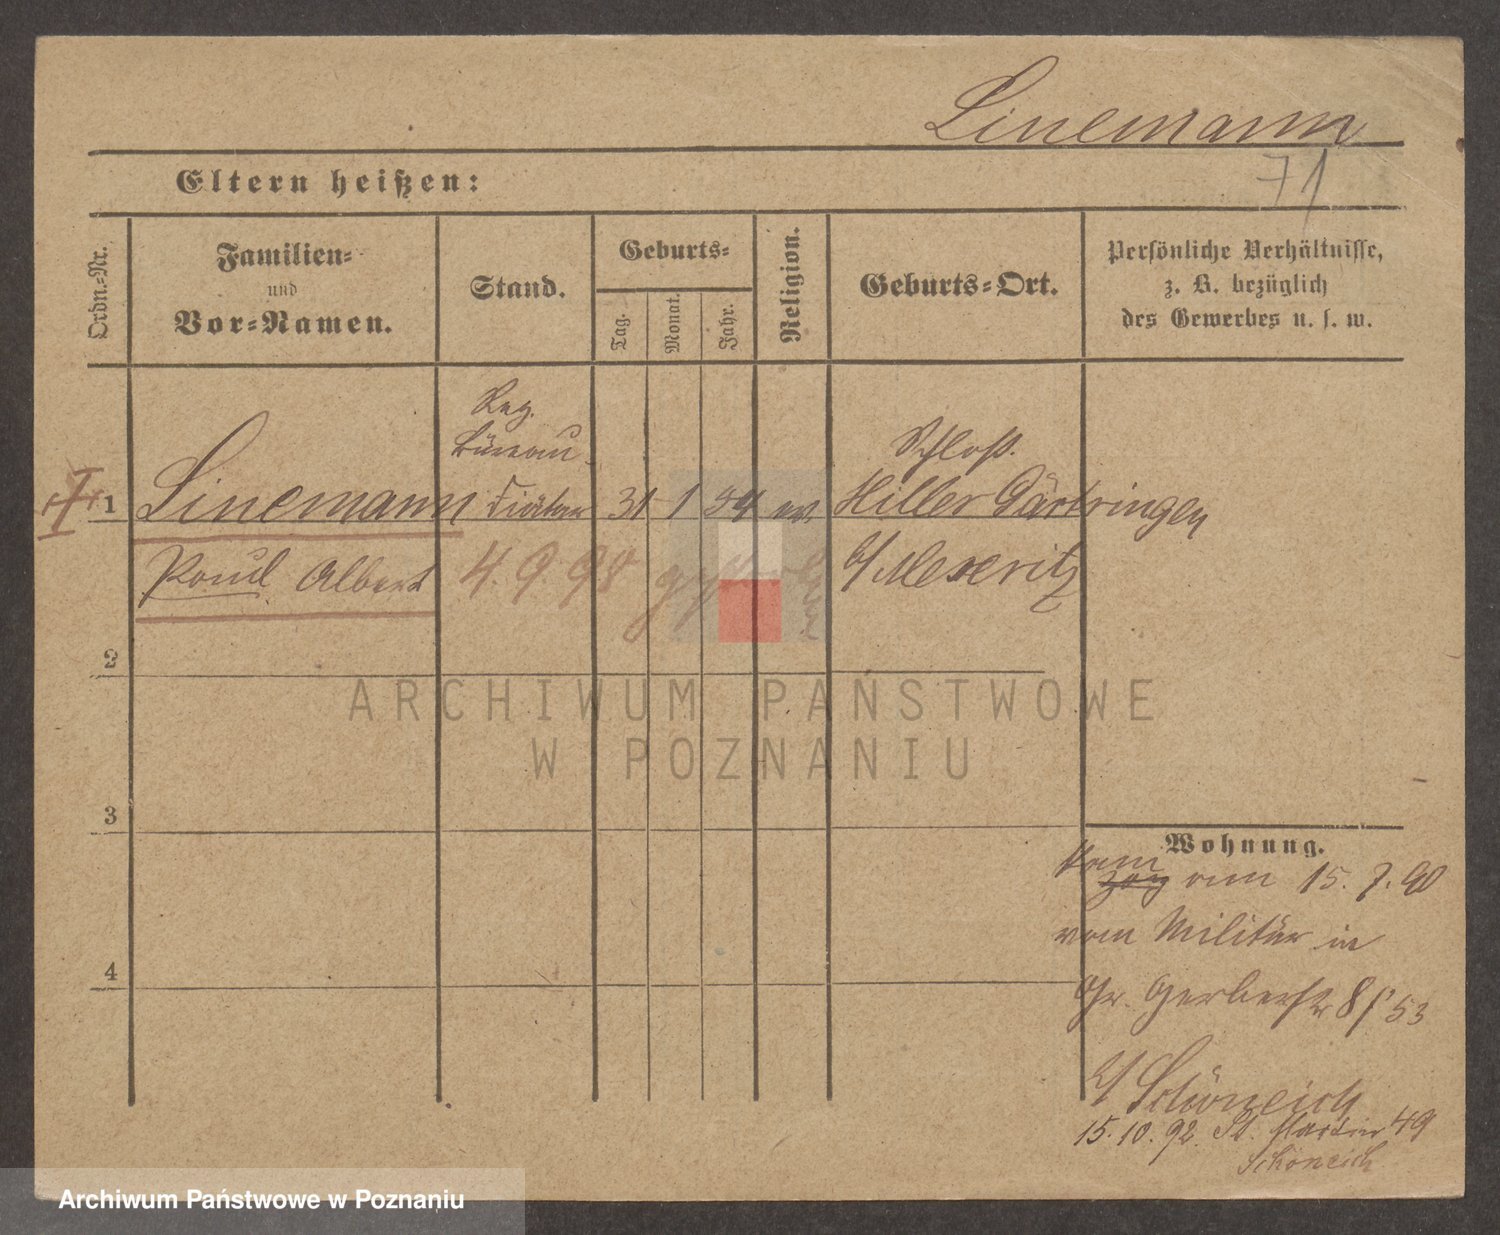 Linemann
71
Eltern heißen:
Ordn.-Nr.
Familien-
und
Vor-Namen.
Stand.
Geburts-
Tag.
Monat.
Jahr.
Religion.
Geburts-Ort.
Persönliche Verhältnisse,
z. B. bezüglich
des Gewerbes u. s. w.
Reg.
Büreau-
Schloß.
1 Linemann Diätar 31 1 54 ev. Hiller Gärtringen
Paul Albert 4. 9. 98 Meseritz
2
ARCHIWUM PAŃSTWOWE
W POZNANIU
3
Wohnung.
kam
zog am 15. 7. 90
vom Militär in
4
Gr. Gerberstr 53
Schöneich
15. 10. 92. St. Martin 49
Schöneich
Archiwum Państwowe w Poznaniu